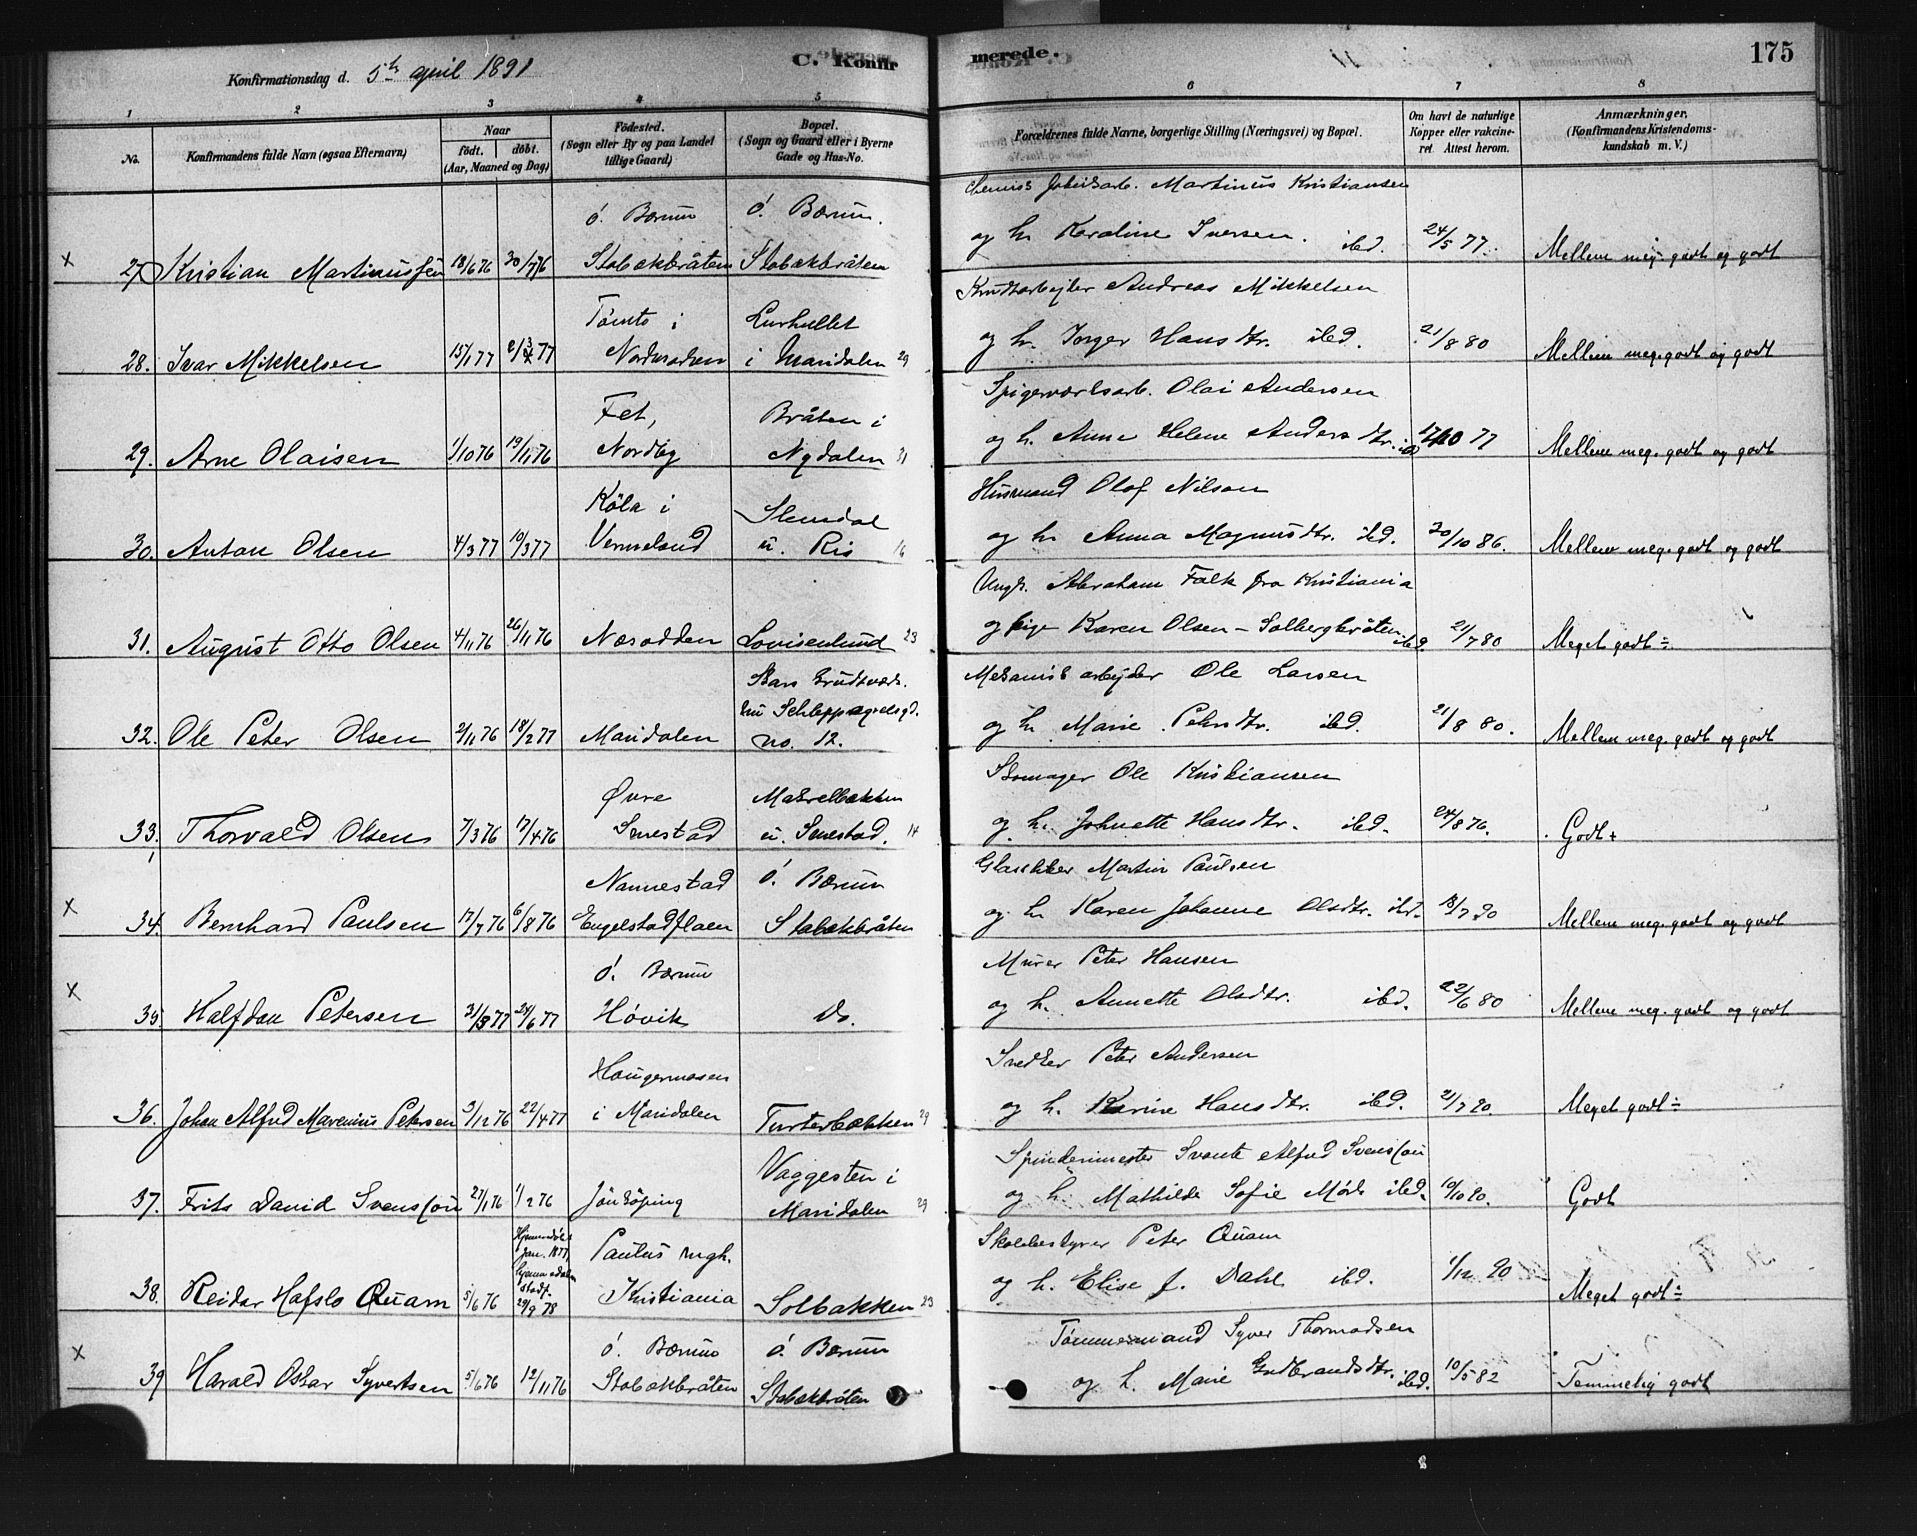 Konfirmationsdag d. 5te april 1891
C. Konfirmerede.
175
1 2 3 4 5 6 7 8
No. Konfirmandens fulde Navn (ogsaa Efternavn) Naar født. døbt. (Aar, Maaned og Dag) Födested. (Sogn eller By og paa Landet tillige Gaard) Bopæl. (Sogn og Gaard eller i Byerne Gade og Hus-No. Forældrenes fulde Navne, borgerlige Stilling (Næringsvei) og Bopæl. Om havt de naturlige Kopper eller vakcineret. Attest herom. Anmærkninger. (Konfirmandens Kristendomskundskab m. V.)
Ö. Bærum Ö. Bærum. Martinus Kristiansen
× 27 Kristian Martinussen 18/6 76 30/7 76 Stabækbråten Stabækbråten og h. Karoline Iversen. ibd. 24/5 77. Mellem meg. godt og godt
Tømte i Lurhullet Krudtarbejder Andreas Mikkelsen
28. Ivar Mikkelsen 15/1 77 2/3 77 Nordmarken i Maridalen 29 og h. Inger Hansdtr. ibd. 21/8 80 Mellem meg. godt og godt
Fet, Bråten i Spigerværksarb. Olai Andersen
29. Arne Olaisen 1/10 76 19/11 76 Nordby Nydalen 31 og h. Anne Helene Andersdtr. ibd 17/10 77 Mellem meg. godt og godt
Köla i Slemdal Husmand Olof Nilson
30. Anton Olsen 4/3 77 10/3 77 Vermeland u. Ris 16 og h. Anna Magnusdtr. ibd. 20/10 86. Mellem meg. godt og godt
Ungk. Abraham Falk fra Kristiania
31. August Otto Olsen 4/11 76 26/11 76 Næsodden Lovisenlund 23 og pige Karen Olsen - Solbergbråten ibd. 21/7 80 Meget godt ÷
Mekanisk arbejder Ole Larsen
32. Ole Peter Olsen 2/11 76 18/2 77 Maridalen nu Schleppegrelsgd. no. 12. og h. Marie Petersdtr. ibd. 21/8 80. Mellem meg. godt og godt
Øvre Makrelbækken Skomager Ole Kristiansen
33. Thorvald Olsen 7/3 76 17/4 76 Smestad u. Smestad. 14 og h. Johnette Hansdtr. ibd. 24/8 76. Godt +
Nannestad Ö. Bærum Martin Paulsen
× 34. Bernhard Paulsen 17/7 76 6/8 76 Engelstadflaen Stabækbråten og h. Karen Johanne Olsdtr. ibd. 18/7 90 Mellem meg. godt og godt
Ö. Bærum Murer Peter Hansen
× 35. Halfdan Petersen 31/3 77 24/6 77 Høvik do. og h. Annette Olsdtr. ibd. 22/6 80 Mellem meg. godt og godt
Haugermosen Snedker Peter Andersen
36. Johan Alfred Marenius Petersen 3/12 76 22/4 77 i Maridalen Turterbækken 29 og h. Karine Hansdtr. ibd. 21/7 90 Meget godt ÷
Vaggesten i Spinderimester Svante Alfred Svensson
37. Frits David Svensson 27/1 76 1/2 76 Jönköping Maridalen 29 og h. Mathilde Sofie Mörk ibd. 10/10 90. Godt
Jan. 1877 Paulus mgh. Skolebestyrer Peter Quam
38. Reidar Hafslo Quam 5/6 76 stadf. 29/9 78 Kristiania Solbakken 23 og h. Elise J. Dahl ibd. 1/12 90 Meget godt ÷
Ö. Bærum Ö. Bærum Tømmermand Syver Thormodsen
× 39 Harald Oskar Syvertsen 5/6 76 12/11 76 Stabækbråten Stabækbråten og h. Marie Gudbrandsdtr. ibd. 10/5 82 Temmelig godt